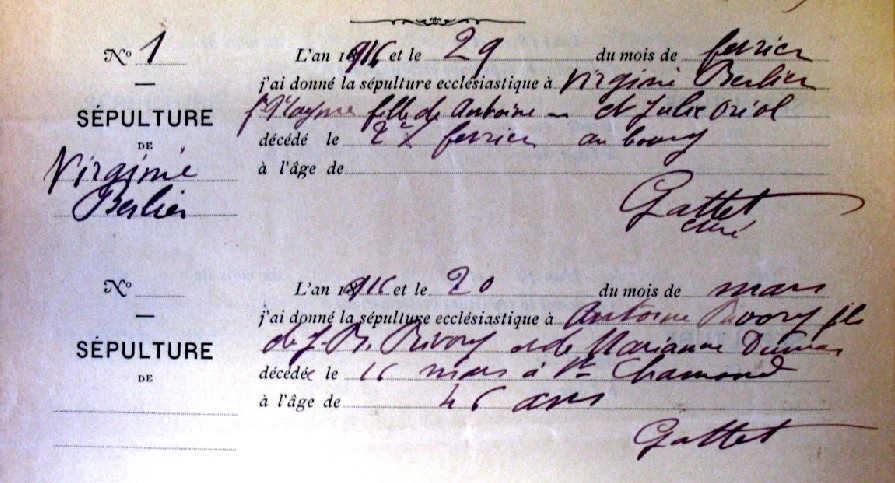 Nº 1
L'an 1916 et le 29 du mois de fevrier
j'ai donné la sépulture ecclésiastique à Virginie Berlier
fille de Antoine et Julie Oriol
SÉPULTURE
DE
Virginie
Berlier
décédé le 27 fevrier au bourg
à l'âge de
Gattet
curé
Nº
L'an 1916 et le 20 du mois de mars
j'ai donné la sépulture ecclésiastique à Antoine Rivory fils
de J. B. Rivory et de Marianne Dumas
SÉPULTURE
DE
décédée le 16 mars à St Chamond
à l'âge de 46 ans
Gattet